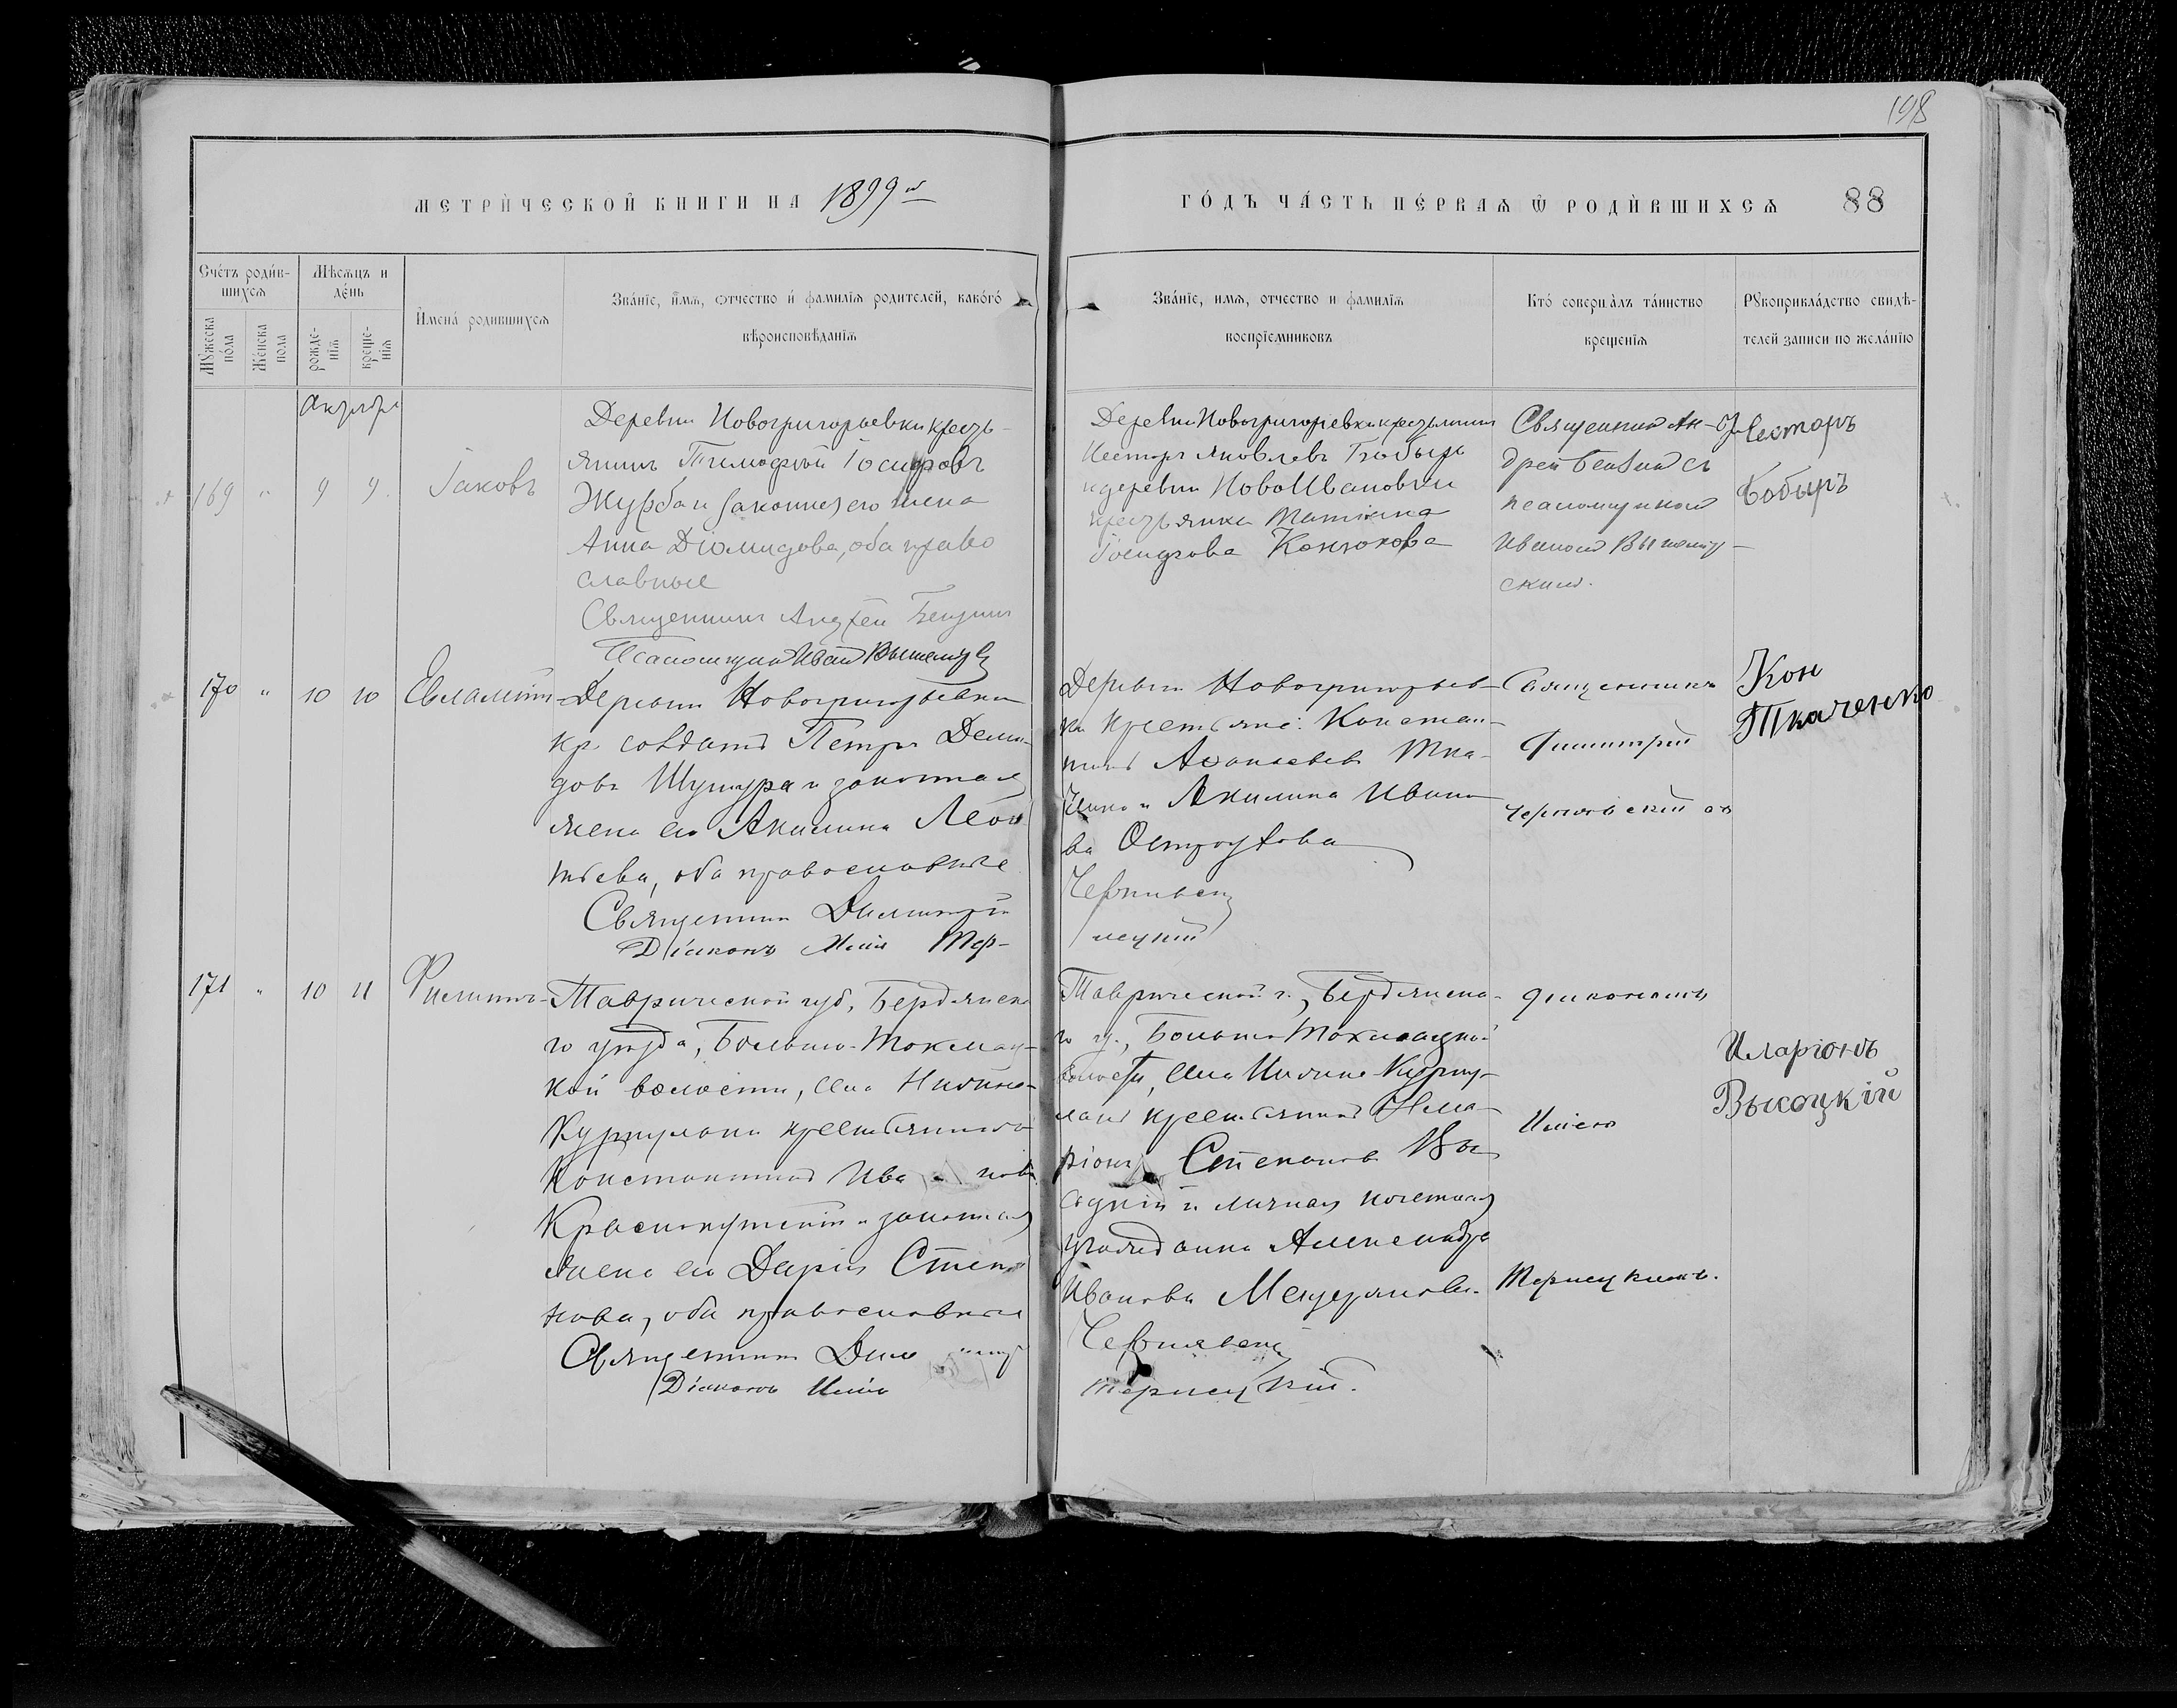 198
МЕТРИЧЕСКОЙ КНИГИ НА 1899й
ГОДЪ ЧАСТЬ ПЕРВАѦ Ѿ РОДИВШИХСѦ 88
Счетъ родив-
шихсѧ
Мѣсѧцъ и
день
Мужеска
пола
Женска
пола
рожде-
нїѧ
креще-
нїѧ
Имена родившихсѧ
Званїе, имѧ, отчество и фамилїѧ родителей, какого
вѣроисповѣданїѧ
Званїе, имѧ, отчество и фамилїѧ
воспрїемниковъ
Кто совершалъ таинство
крещенїѧ
Рукоприкладство свидѣ-
телей записи по желанїю
169 " 9 9 Іаковъ
Деревни Новогригорьевки кресть-
янинъ Тимофей Іосифовъ
Журба и законная его жена
Анна Діомидова, оба право
славные
Священникъ Андрей
Псаломщикъ Иван
Деревни Новогригорьевки крестьянинъ
Несторъ Яковлевъ Бобырь
и деревни НовоИвановки
крестьянка Татіана
Іосифова Конюхова
Священник Ан-
дрей съ
псаломщикомъ
Иваном
ским.
Несторъ
Бобырь
170 " 10 10 Евлампій
Деревни Новогригорьевки
кр. солдатъ Петръ Деми-
довъ и законная
жена его Акилина Леон
тьева, оба православные
Священник Димитрій
Діаконъ Илія Тер-
Деревни Новогригорьев-
ки крестьяне: Констан-
тинъ Аѳанасьевъ Тка-
ченко и Акилина Ивано
ва Остроухова
Чернявск
нецкій
Священникъ
Димитрій
Чернявскій съ
Кон
Ткаченко
171 " 10 11 Филиппъ
Таврической губ. Бердянска
го уѣзда, Больше-Токмац-
кой волости, села Нижне-
Куркулака крестьянинъ
Константинъ Ива новъ
Краснокутскій и законная
жена его Дарія Степа
нова, оба православные
Священник Дим итр
Діаконъ Илія
Таврической г., Бердянска-
го у., Больше Токмацкой
волости, села Нижне Курку-
лака крестьянинъ Ила-
ріонъ Степановъ Вы
соцкій и личная почетная
гражданка Александра
Иванова
Чернявскій
Тернецкій.
діакономъ
Иліею
Тернецкимъ.
Иларіонъ
Высоцкій